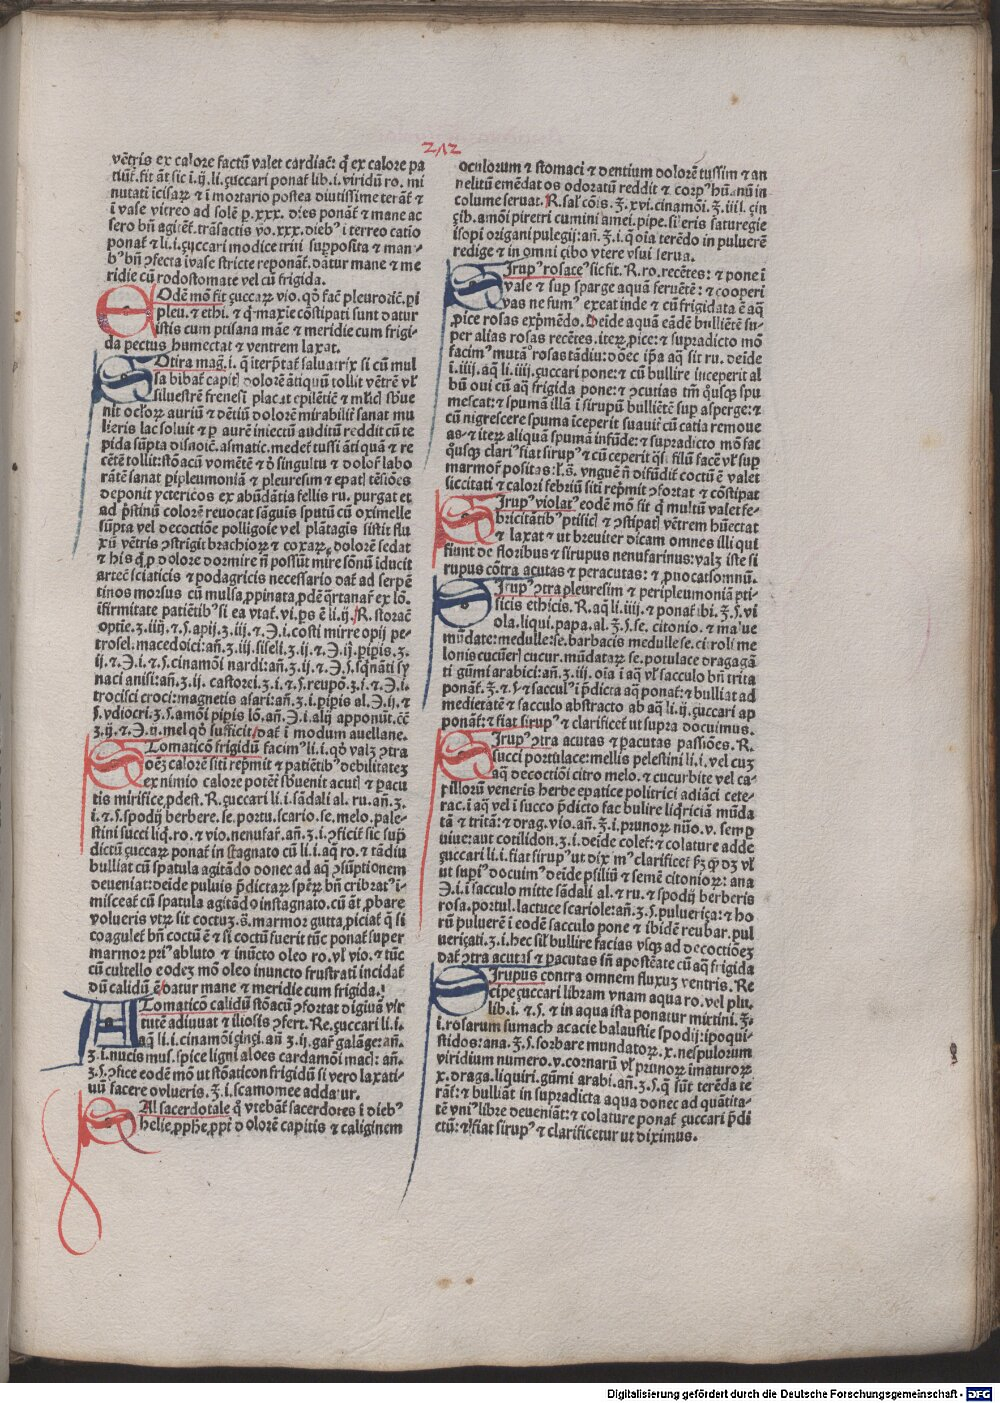 212
vētris ex calore factū valet cardiac̄: q̄ ex calore pa
tiūt̄. fit āt sic i. ij. li. çuccari ponat̄ lib. i. viridū ro. mi
nutati īcisaꝝ ⁊ ī mortario postea diutissime terāt̄ ⁊
ī vase vitreo ad solē p. xxx. dies ponāt̄ ⁊ mane ac
sero bn̄ agitēt̄. trāsactis vo. xxx. dieb⁹ ī terreo catio
ponat̄ ⁊ li. i. çuccari modice trini supposita ⁊ man-
b⁹ bn̄ ↄfecta ī vase stricte reponāt̄. dātur mane ⁊ me
ridie cū rodostomate vel cū frigida.
EOdē mō fit çuccaꝝ vio. qd̓ fac̄ pleuroric̄. pi
pleu. ⁊ ethi. ⁊ q̄ maxīe cōstipati sunt datur
istis cum ptisana māe ⁊ meridie cum frigi-
da pectus humectat ⁊ ventrem laxat.
SOtira mag. i. q̄ iterp̄tat̄ saluatrix si cū mul
sa bibat̄ capitꝭ dolorē ātiquū tollit vētrē vl̓
siluestrē frenesī placat epilētic̄ ⁊ subue
nit oculoꝝ auriū ⁊ dētiū dolorē mirabilit̄ sanat mu
lieris lac soluit ⁊ p aurē iniectū auditū reddit cū te
pida sūpta disnoic̄. asmatic. medet̄ tussi āti quā ⁊ re
cētē tollit: stōacū vomētē ⁊ d̓ singultu ⁊ dolor̄ labo
rātē sanat pipleumoniā ⁊ pleuresim ⁊ epatꝭ tēsiōes
deponit yctericos ex abūdātia fellis ru. purgat et
ad p̄stinū colorē reuocat sāguis sputū cū oximelle
sūpta vel decoctiōe polligoie vel plātagis sistit flu
xū vētris ↄstrigit brachioꝝ ⁊ coxaꝝ dolorē sedat
⁊ his q̄ p dolore dormire nō possūt mire sōnū īducit
artec̄ sciaticis ⁊ podagricis necessario dat̄ ad serpē
tinos morsus cū mulsa ,ppinata ,pdē q̄rtanar̄ ex lō.
īfirmitate patiētib⁹ si ea vtat̄. vi. ps ē li. ij. R. storac̄
optie. ʒ. iiij. ⁊ s. apij. ʒ. iii. ⁊ ℈. i. costi mirre opij pe-
trosel. macedoici: an̄. ʒ. iii. siseli. ʒ. ij. ⁊ ℈. ij. pipis. ʒ.
ij. ⁊ ℈. i. ⁊ s. cinamōi nardi: an̄. ʒ. ij. ⁊ ℈. s. sq̄nāti sy
naci anisi: an̄. ʒ. ij. castorei. ʒ. i. ⁊ s. reupō. ʒ. i. ⁊ ℈. i.
trocisci croci: magnetis asari: an̄. ʒ. i. pipis al. ℈. ij. ⁊
s. ydiocri. ʒ. s. amōi pipis lō. an̄. ℈. i. alij apponūt. c̄c̄
ʒ. ij. ⁊ ℈. ij. mel qd̓ sufficit dat̄ ī modum auellane.
STomaticō frigidū facim⁹ li. i. qd̓ valꝫ ↄtra
oēꝫ calorē siti rep̄mit ⁊ patiētib⁹ debilitateꝫ
ex nimio calore potēt̄ subuenit acutꝭ ⁊ pacu
tis mirifice ,pdest. R. çuccari li. i. sādali al. ru. an̄. ʒ.
i. ⁊ s. spodij berbere. se. portu. scario. se. melo. pale-
stini succi liq̄. ro. ⁊ vio. nenufar̄. an̄. ʒ. i. ↄficit̄ sic sup̄
dictū çuccaꝝ ponat̄ in stagnato cū li. i. aq̄ ro. ⁊ tādiu
bulliat cū spatula agitādo donec ad aq̄ ↄsūptionem
deueniat: deīde puluis p̄dictaꝝ sp̄eꝝ bn̄ cribrat⁹ ī-
misceat̄ cū spatula agitādo in stagnato. cū āt ,pbare
volueris vtꝝ sit coctuꝫ. s. marmor gutta ,piciat̄ q̄ si
coagulet̄ bn̄ coctū ē ⁊ si coctū fuerit tūc ponat̄ super
marmor pri⁹ abluto ⁊ inūcto oleo ro. vl̓ vio. ⁊ tūc
cū cultello eodeꝫ mō oleo inuncto frustrati incidat̄
dū calidū ē datur mane ⁊ meridie cum frigida.
STomaticō calidū stōacū ↄfortat digiuā vir
tutē adiuuat ⁊ iliosis ↄfert. Re. çuccari li. i.
aq̄ li. i. cinamōi çinçi. an̄ ʒ. ij. gar̄ galāge: an̄.
ʒ. i. nucis mus. spice ligni aloes cardamōi mac̄: an̄.
ʒ. s. ↄfice eodē mō ut stōaticon frigidū si vero laxati-
uū facere volueris. ʒ. i. scamonee addatur.
SAl sacerdotale q̄ vtebāt̄ sacerdotes ī dieb⁹
helie ,pphē ,ppt̄ dolorē capitis ⁊ caliginem
oculorum ⁊ stomaci ⁊ dentium dolorē tussim ⁊ an
nelitū emēdat os odoratū reddit ⁊ corp⁹ humanū in
colume seruat. R. sal cōis. ʒ. xvi. cinamōi. ʒ. iiii. çin
çib. amōi piretri cumini amei. pipe. sileris saturegie
isopi origani pulegij: an̄. ʒ. i. q̄ oīa terēdo in puluerē
redige ⁊ in omni çibo vtere vsui serua.
SIrup⁹ rosacc̄ sic fit. R. ro. recētes: ⁊ pone ī
vase ⁊ sup sparge aquā feruētē: ⁊ cooperi
vas ne fum⁹ exeat inde ⁊ cū frigidata ē aq̄
,pice rosas exp̄mēdo. Deīde aquā eādē bulliētē su-
per alias rosas recētes. iteꝝ ,pice: ⁊ supradicto mō
facim⁹ mutād rosas tādiu: donec ip̄a aq̄ sit ru. deīde
ī. iiij. aq̄ li. iiij. çuccari pone: ⁊ cū bullire inceperit al
bū oui cū aq̄ frigida pone: ⁊ ↄcutias tm̄ q̄usqꝫ spu
mescat: ⁊ spumā illā ī sirupū bulliētē sup asperge: ⁊
cū nigrescere spuma īceperit suauit̄ cū catia remoue
as: ⁊ iteꝝ aliquā spumā infūde: ⁊ supradicto mō fac
q̄usqꝫ clar⁹ fiat sirup⁹ ⁊ cū ceperit q̄si filū facē vl̓ sup
marmor̄ positas: vl̓. s. vnguē n̄ difūdit̄ coctū ē valet
siccitati ⁊ calori febriū sitī rep̄mit ↄfortat ⁊ cōstipat
SIrup⁹ violat⁹ eodē mō fit q̄ multū valet fe-
bricitātib⁹ ptisicꝭ ⁊ ↄstipatꝭ vētrem hūectat
⁊ laxat ⁊ ut breuiter dicam omnes illi qui
fiunt de floribus ⁊ sirupus nenufarinus: valꝫ iste si
rupus cōtra acutas ⁊ peracutas: ⁊ ,puocat sōmnū.
SIrup⁹ ↄtra pleuresim ⁊ peripleumoniā pti-
sicis ethicis. R. aq̄ li. iiii. ⁊ ponat̄ ibi. ʒ. s. vi
ola. liqui. papa. al. ʒ. s. se. citonio. ⁊ malue
mūdate: medulle: se. barbacis medulle se. citroli me
lonis cucuēr̄ cucur. mūdataꝝ se. potulace dragagā
ti gūmi arabici: an̄. ʒ. iii. oīa ī aq̄ vl̓ sacculo bn̄ trita
ponāt̄. ʒ. ⁊ s. ⁊ saccul⁹ ī p̄dicta aq̄ ponat̄: ⁊ bulliat ad
medietatē ⁊ sacculo abstracto ab aq̄ li. ij. çuccari ap
ponāt̄: ⁊ fiat sirup⁹ ⁊ clarificet̄ ut supra docuimus.
SIrup⁹ ↄtra acutas ⁊ pacutas passiōes. R.
succi portulace: mellis pelestini li. i. vel cuꝫ
aq̄ decoctiōi citro melo. ⁊ cucurbite vel ca-
pillorū veneris herbe epatice politrici adiāci cete-
rac. ī aq̄ vel ī succo p̄dicto fac bulire liq̄riciā mūda
tā ⁊ tritā: ⁊ drag. vio. an̄. ʒ. i. prunoꝝ nūo. v. semp
viue: aut cotilidon. ʒ. i. deīde colet̄: ⁊ colature adde
çuccari li. i. fiat sirup⁹ ut dixim⁹ clarificet̄ vl̓
ut supi⁹ docuim⁹ deīde psiliū ⁊ semē citonioꝝ: ana
℈. i. ī sacculo mitte sādali al. ⁊ ru. ⁊ spodij berberis
rosa. portul. lactuce scariole: an̄. ʒ. s. pulueriça: ⁊ ho
rū puluerē ī eodē sacculo pone ⁊ ibidē reubar. pul
ueriçati. ʒ. i. hec sīl bullire facias vsqꝫ ad decoctiōeꝫ
dat̄ ↄtra acutas ⁊ pacutas sn̄ apostēate cū aq̄ frigida
SIrupus contra omnem fluxuꝫ ventris. Re
cipe çuccari libram vnam aqua ro. vel plu.
lib. i. ⁊ s. ⁊ in aqua ista ponatur mirtini. ʒ.
i. rosarum sumach acacie balaustie spodij: ipoqui-
stidos: ana. ʒ. s. sorbare mundatoꝝ. x. nespulorum
viridium numero. v. cornarū vl̓ prunoꝝ īmaturoꝝ
x. draga. liquiri. gūmi arabi. an̄. ʒ. s. q̄ sūt terēda te
rāt̄: ⁊ bulliāt in supradicta aqua donec ad quātita-
tē vni⁹ libre deueniāt: ⁊ colature ponat̄ çuccari p̄di
ctū: ⁊ fiat sirup⁹ ⁊ clarificetur ut diximus.
Digitalisierung gefördert durch die Deutsche Forschungsgemeinschaft - DFG